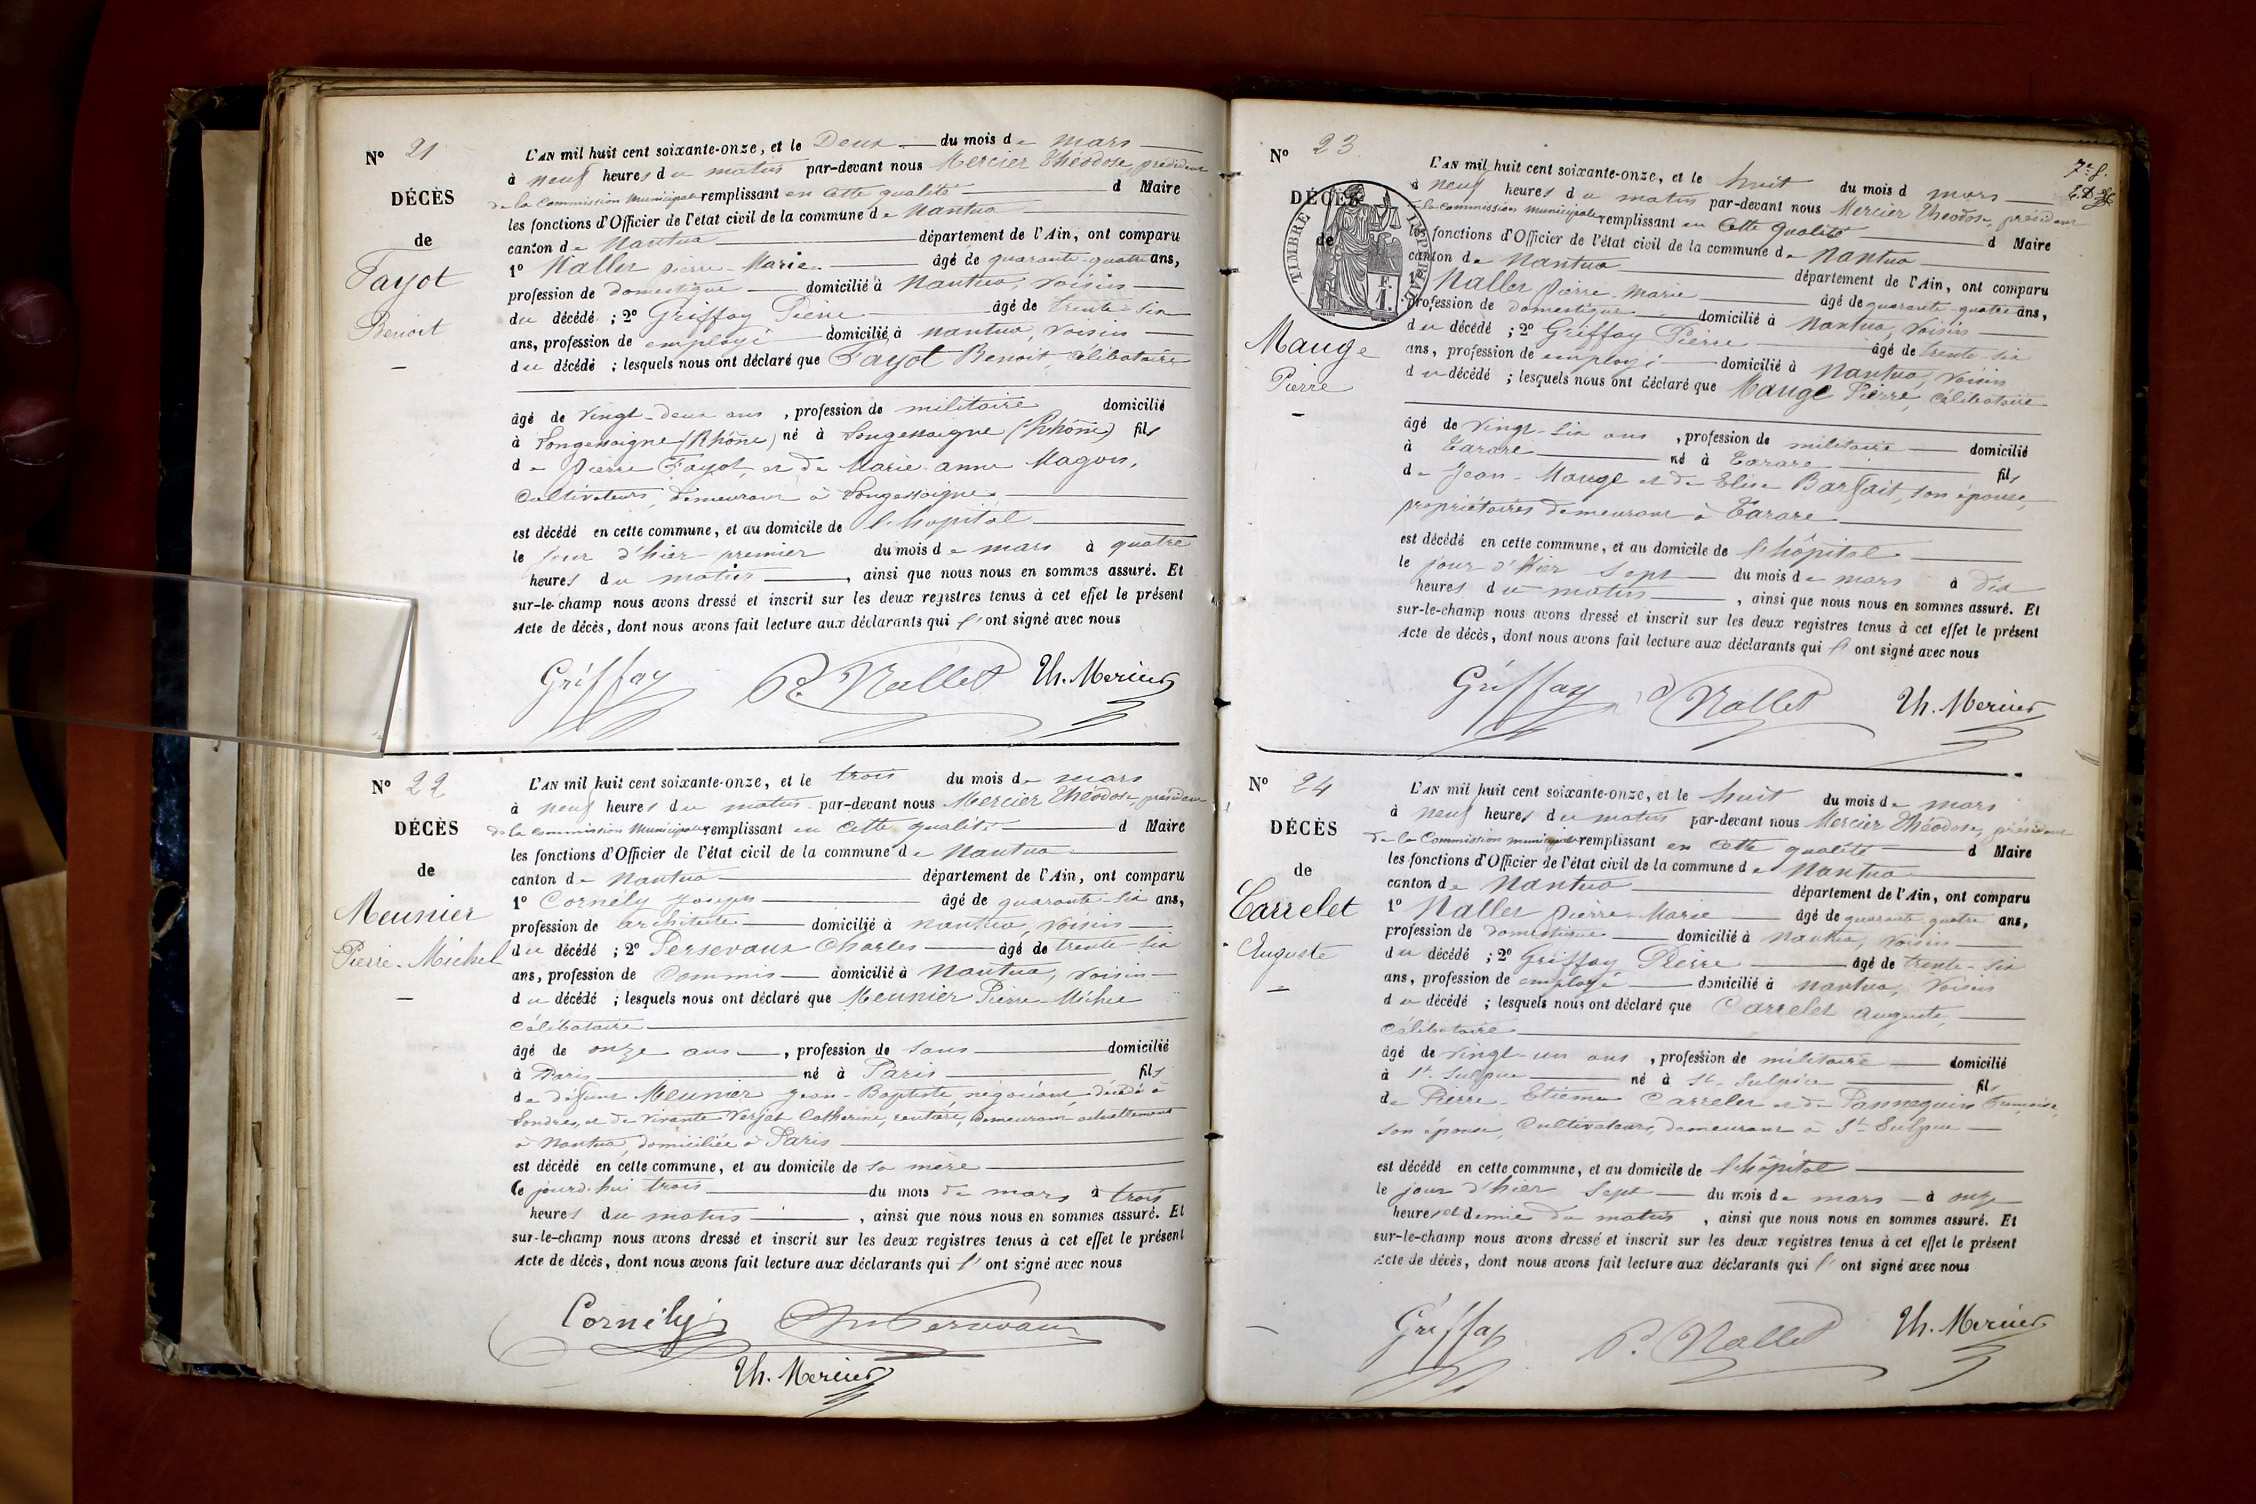 N° 21
DÉCÈS
de
Fayot
Benoit
L'AN mil huit cent soixante-onze, et le Deux du mois de mars
à neuf heures du matin par-devant nous Mercier Théodose, président
de la Commission Municipale remplissant en cette qualité d Maire
les fonctions d'Officier de l'état civil de la commune de Nantua
canton de Nantua département de l'Ain, ont comparu
1° Nallet Pierre-Marie âgé de quarante-quatre ans,
profession de domestique domicilié à Nantua, voisin
du décédé ; 2° Griffay Pierre âgé de trente-six
ans, profession de employé domicilié à Nantua, voisin
du décédé ; lesquels nous ont déclaré que Fayot Benoit, célibataire
âgé de vingt-deux ans , profession de militaire domicilié
à Longessaigne (Rhône) né à Longessaigne (Rhône) fils
de Pierre Fayot, et de Marie-anne Magon,
Cultivateurs, demeurant à Longessaigne
est décédé en cette commune, et au domicile de l'hopital
le jour d'hier premier du mois de mars à quatre
heures du matin , ainsi que nous nous en sommes assuré. Et
sur-le-champ nous avons dressé et inscrit sur les deux registres tenus à cet effet le présent
Acte de décès, dont nous avons fait lecture aux déclarants qui l' ont signé avec nous
Griffay P. Nallet Th. Mercier
N° 22
DÉCÈS
de
Meunier
Pierre-Michel
L'AN mil huit cent soixante-onze, et le trois du mois de mars
à neuf heures du matin par-devant nous Mercier Théodose, président
de la Commission Municipale remplissant en cette qualité d Maire
les fonctions d'Officier de l'état civil de la commune de Nantua
canton de Nantua département de l'Ain, ont comparu
1° Cornély Joseph âgé de quarante-six ans,
profession de architecte domicilié à Nantua, voisin
du décédé ; 2° Persevaux Charles âgé de trente-six
ans, profession de Commis domicilié à Nantua, voisin
du décédé ; lesquels nous ont déclaré que Meunier Pierre-Michel
Célibataire
âgé de onze ans , profession de sans domicilié
à Paris né à Paris fils
de défunt Meunier Jean-Baptiste, négociant, décédé à
Londres, et de vivante Verjat Catherine, rentière, demeurant actuellement
à Nantua, domiciliée à Paris
est décédé en cette commune, et au domicile de sa mère
le jourd'hui trois du mois de mars à trois
heures du matin , ainsi que nous nous en sommes assuré. Et
sur-le-champ nous avons dressé et inscrit sur les deux registres tenus à cet effet le présent
Acte de décès, dont nous avons fait lecture aux déclarants qui l' ont signé avec nous
Cornély Ch Persevaux
Th. Mercier
N° 23
DÉCÈS
de
TIMBRE IMPERIAL
Mauge
Pierre
7e f.
L'AN mil huit cent soixante-onze, et le huit du mois d mars
à neuf heures du matin par-devant nous Mercier Théodose, président
de la commission municipale remplissant en cette qualité d Maire
les fonctions d'Officier de l'état civil de la commune de Nantua
canton de Nantua département de l'Ain, ont comparu
1° Nallet Pierre-Marie âgé de quarante-quatre ans,
profession de domestique domicilié à Nantua, voisin
du décédé ; 2° Griffay Pierre âgé de trente-six
ans, profession de employé domicilié à Nantua, voisin
du décédé ; lesquels nous ont déclaré que Mauge Pierre, célibataire
âgé de vingt-six ans , profession de militaire domicilié
à Tarare né à Tarare fils
de Jean-Mauge et de Elise Barfait, son épouse,
propriétaires demeurant à Tarare
est décédé en cette commune, et au domicile de l'hôpital
le jour d'hier sept du mois de mars à dix
heures du matin , ainsi que nous nous en sommes assuré. Et
sur-le-champ nous avons dressé et inscrit sur les deux registres tenus à cet effet le présent
Acte de décès, dont nous avons fait lecture aux déclarants qui l' ont signé avec nous
Griffay P Nallet Th. Mercier
N° 24
DÉCÈS
de
Carrelet
Auguste
L'AN mil huit cent soixante-onze, et le huit du mois de mars
à neuf heures du matin par-devant nous Mercier Théodose, président
de la Commission municipale remplissant en cette qualité d Maire
les fonctions d'Officier de l'état civil de la commune de Nantua
canton de Nantua département de l'Ain, ont comparu
1° Nallet Pierre-Marie âgé de quarante-quatre ans,
profession de domestique domicilié à Nantua, voisin
du décédé ; 2° Griffay Pierre âgé de trente-six
ans, profession de employé domicilié à Nantua, voisin
du décédé ; lesquels nous ont déclaré que Carrelet Auguste,
Célibataire
âgé de vingt-un ans , profession de militaire domicilié
à St Sulpice né à St Sulpice fils
de Pierre-Etienne Carrelet et de Pannequin Françoise,
son épouse, Cultivateurs, demeurant à St Sulpice
est décédé en cette commune, et au domicile de l'hôpital
le jour d'hier sept du mois de mars à onze
heures et demie du matin , ainsi que nous nous en sommes assuré. Et
sur-le-champ nous avons dressé et inscrit sur les deux registres tenus à cet effet le présent
Acte de décès, dont nous avons fait lecture aux déclarants qui l' ont signé avec nous
Griffay P. Nallet Th. Mercier